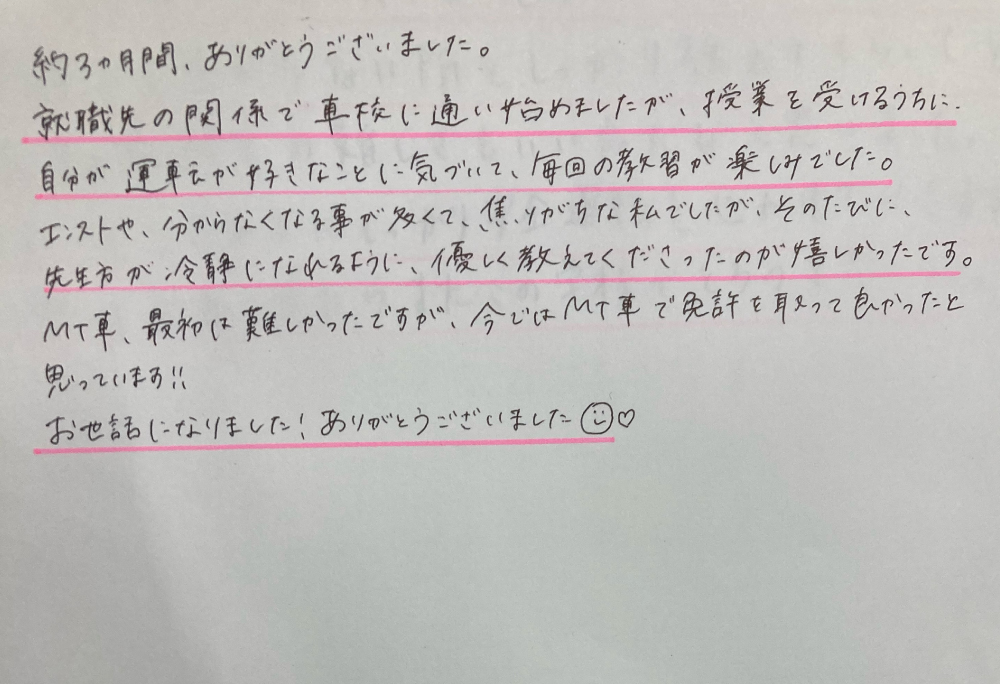 約3ヵ月間、ありがとうございました。
就職先の関係で車校に通い始めましたが、授業を受けるうちに、
自分が運転が好きなことに気づいて、毎回の教習が楽しみでした。
エンストや、分からなくなる事が多くて、焦りがちな私でしたが、そのたびに、
先生方が冷静になれるように、優しく教えてくださったのが嬉しかったです。
MT車、最初は難しかったですが、今ではMT車で免許を取って良かったと
思っています!!
お世話になりました!ありがとうございました☺♡